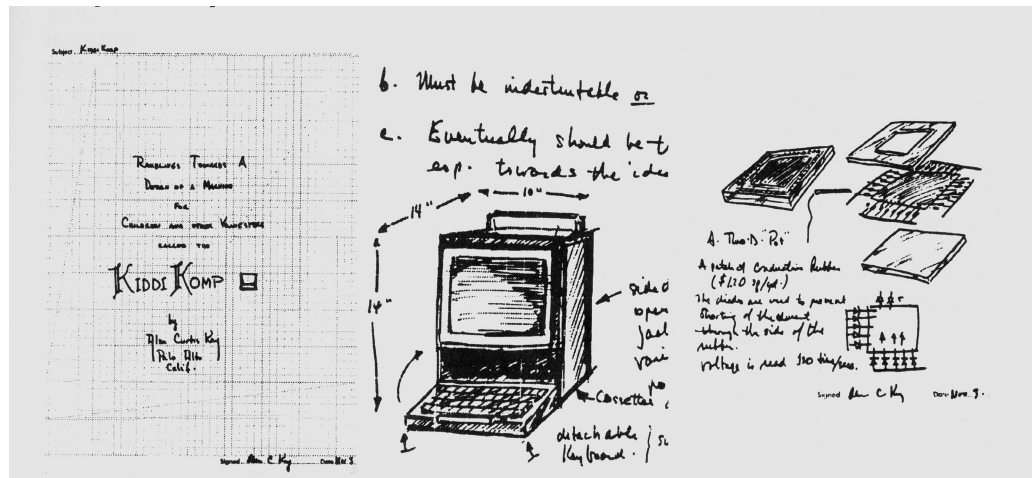 Subject Kiddi Komp
Ramblings Towards A
Design of a Machine
For
Children and other
called the
KIDDI KOMP
by
Alan Curtis Kay
Palo Alto
Calif.
Signed Alan C Kay Date Nov. 9.
b. Must be indestructable or
c. Eventually should be t
esp. towards the idea
10"
14"
14"
side o
open
jac
vari
po
Cassettes
detachable
Keyboard.
A. Two.D. "Pot"
A patch of Conductive Rubber
($1.20 sq/yd.)
The diodes are used to prevent
Shorting of the current
through the side of the
rubber.
Voltage is read 120 times/sec.
Signed Alan C Kay Date Nov. 9.